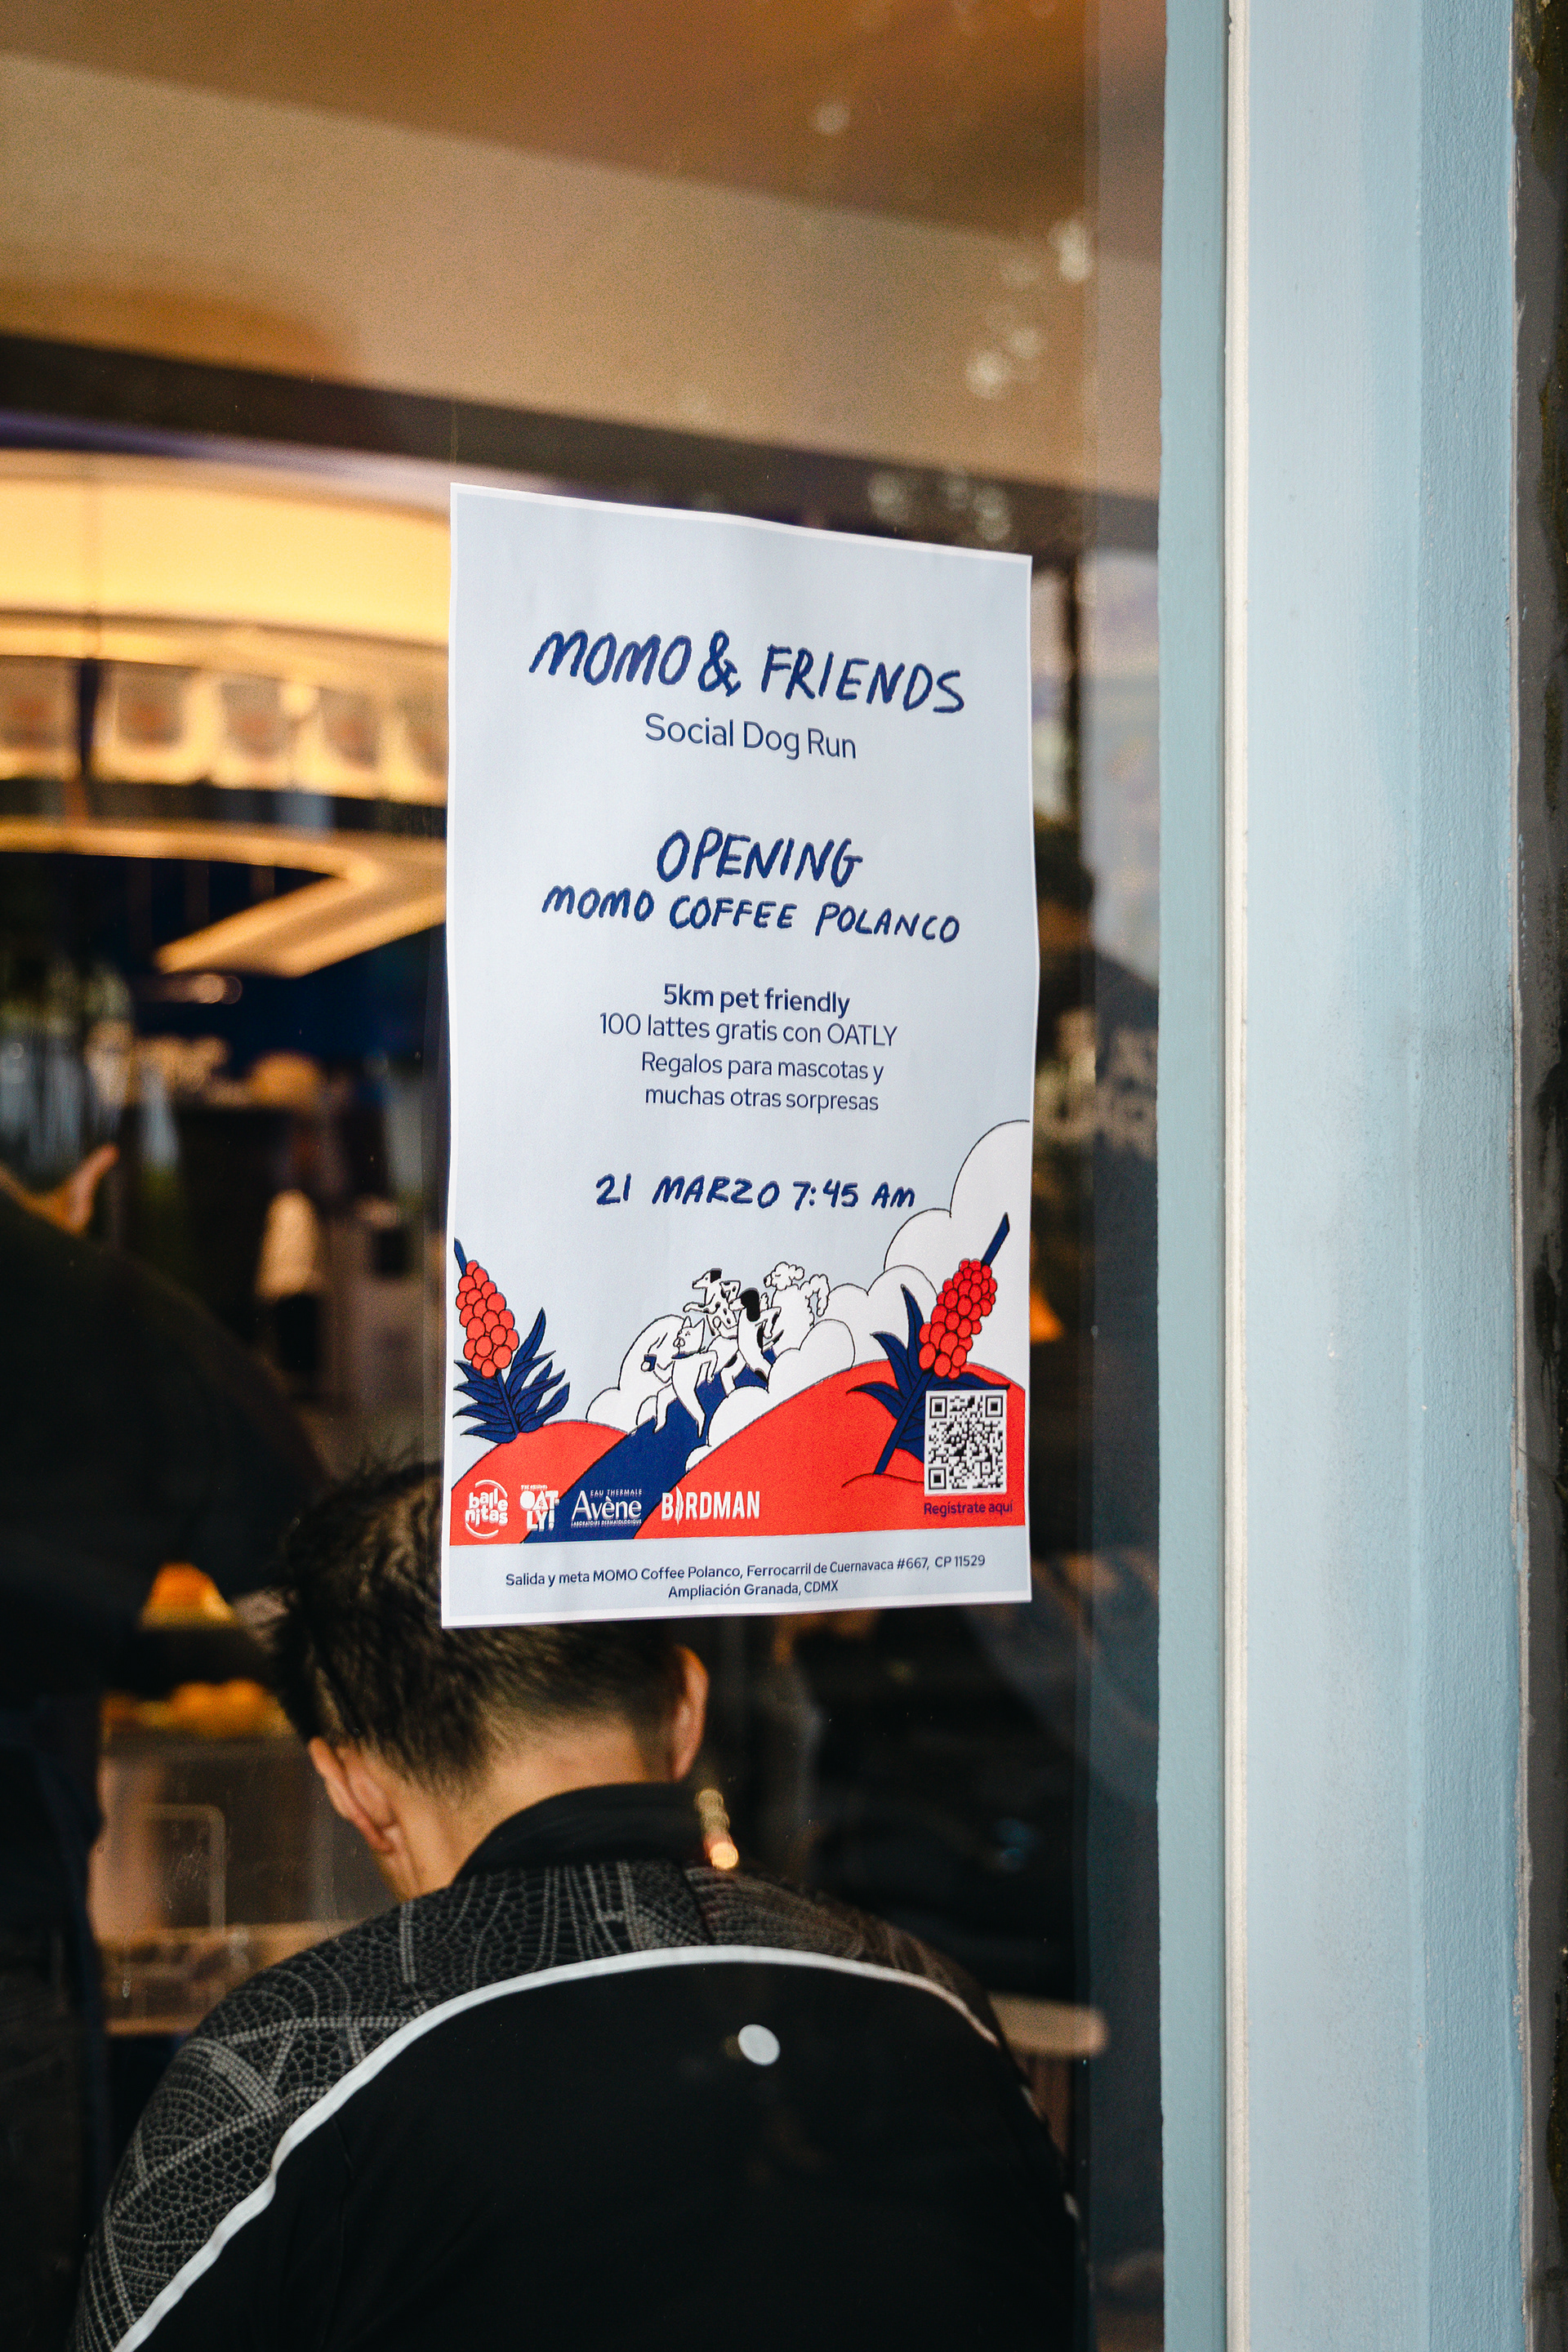 MOMO & FRIENDS
Social Dog Run
OPENING
MOMO COFFEE POLANCO
5km pet friendly
100 lattes gratis con OATLY
Regalos para mascotas y
muchas otras sorpresas
21 MARZO 7:45 AM
balle
nitas
OAT
LY!
EAU THERMALE
Avène
LABORATOIRE DERMATOLOGIQUE
BIRDMAN
Regístrate aquí
Salida y meta MOMO Coffee Polanco, Ferrocarril de Cuernavaca #667, CP 11529
Ampliación Granada, CDMX